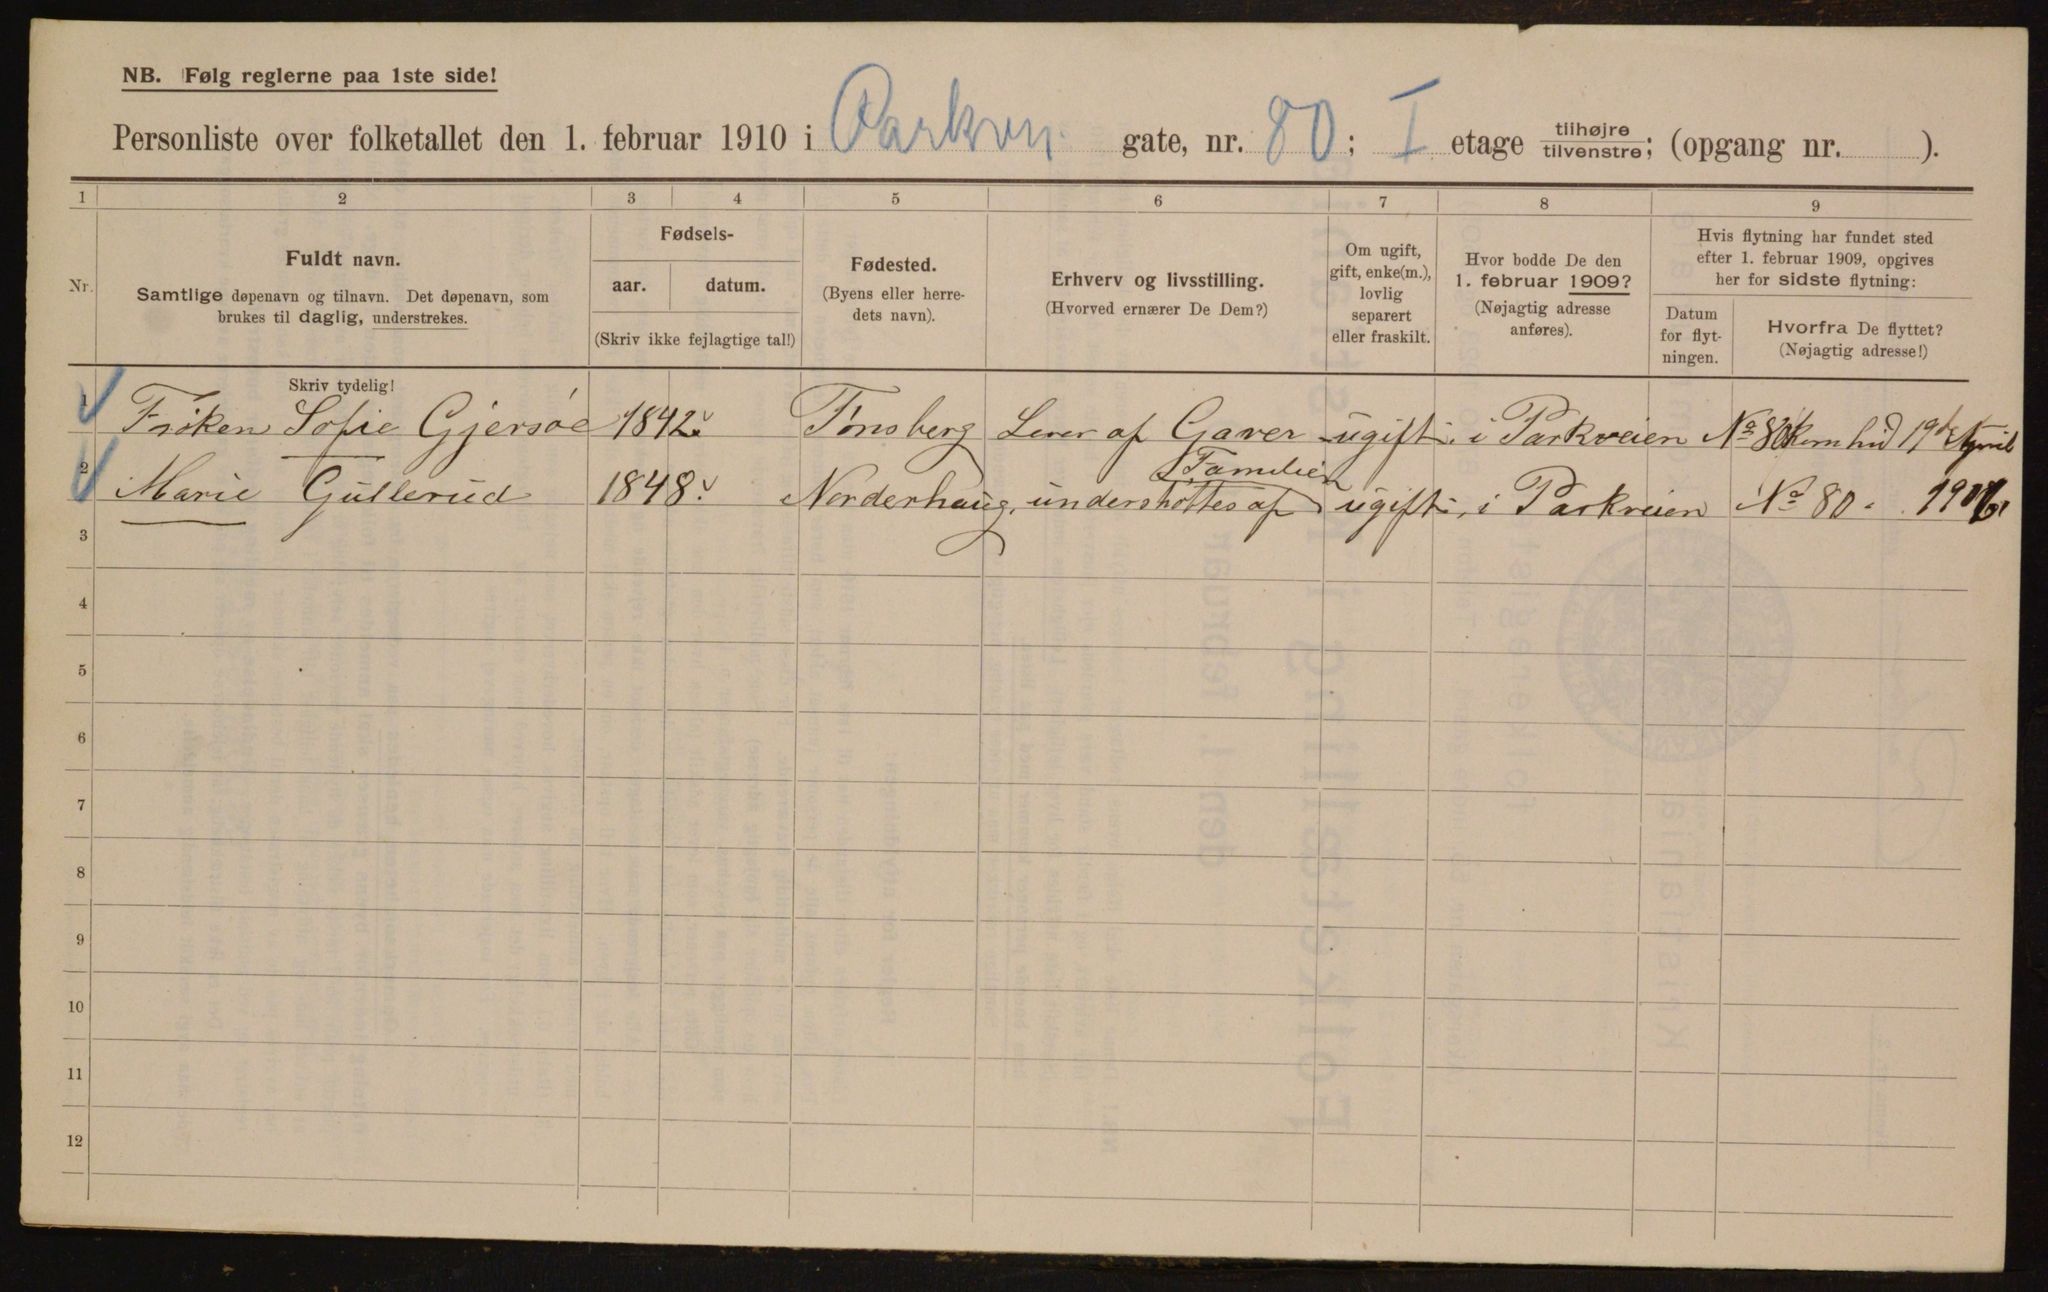 NB. Følg reglerne paa 1ste side!
Personliste over folketallet den 1. februar 1910 i Parkvn. gate, nr. 80; I etage tilhøjre tilvenstre; (opgang nr. ).
1 2 3 4 5 6 7 8 9
Nr.
Fuldt navn.
Samtlige døpenavn og tilnavn. Det døpenavn, som
brukes til daglig, understrekes.
Fødsels-
aar. datum.
(Skriv ikke fejlagtige tal!)
Fødested.
(Byens eller herre-
dets navn).
Erhverv og livsstilling.
(Hvorved ernærer De Dem?)
Om ugift,
gift, enke(m.),
lovlig
separert
eller fraskilt.
Hvor bodde De den
1. februar 1909?
(Nøjagtig adresse
anføres).
Hvis flytning har fundet sted
efter 1. februar 1909, opgives
her for sidste flytning:
Datum
for flyt-
ningen.
Hvorfra De flyttet?
(Nøjagtig adresse!)
Skriv tydelig!
1 Frøken Sofie Gjersøe 1842. Tønsberg Lever af Gaver ugift. i Parkveien No 80 kom hid 19de April
2 Marie Gullerud 1848. Norderhaug, understøttes af Familien ugift, i Parkveien No 80.
3
4
5
6
7
8
9
10
11
12